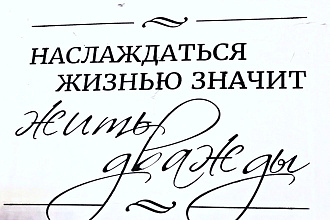 НАСЛАЖДАТЬСЯ
ЖИЗНЬЮ ЗНАЧИТ
жить
дважды